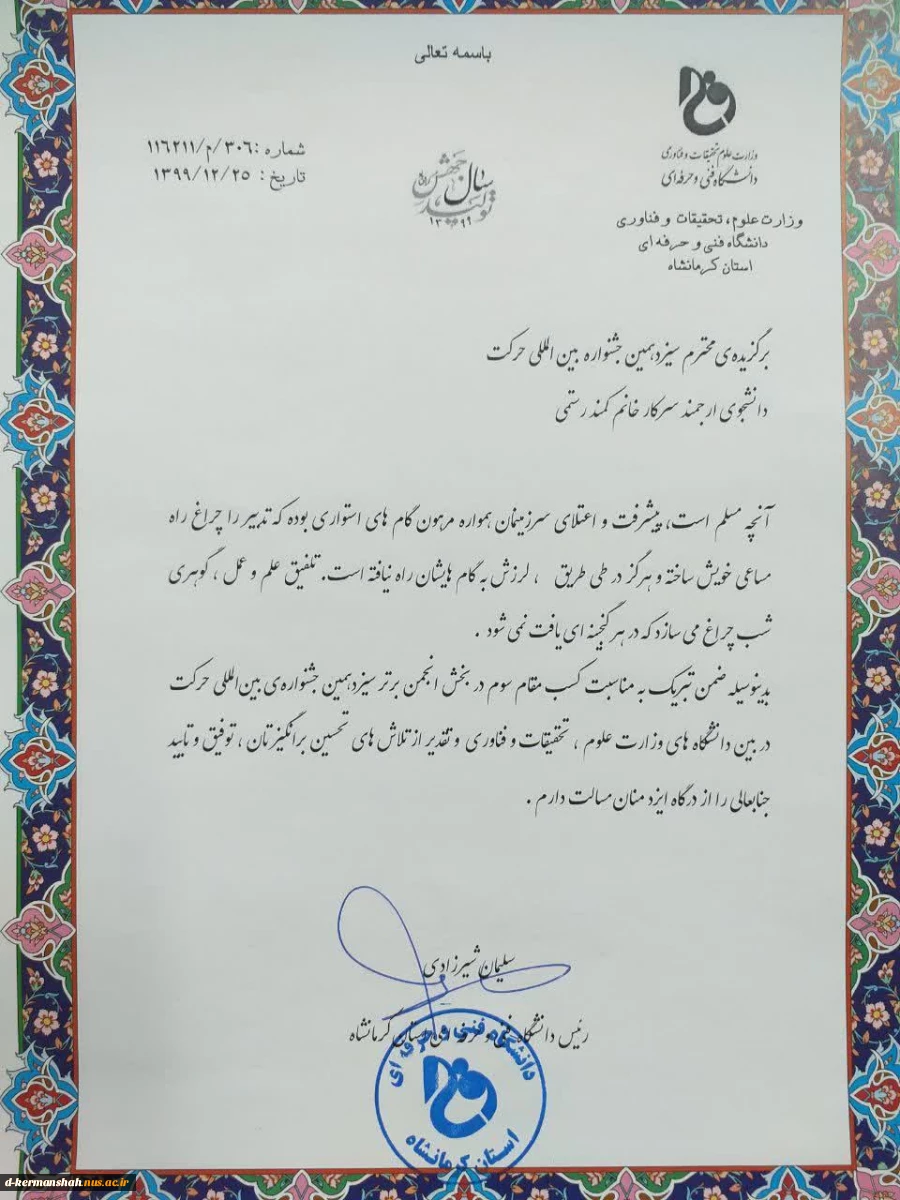 باسمه تعالی
وزارت علوم تحقیقات و فناوری
دانشگاه فنی و حرفه‌ای
وزارت علوم، تحقیقات و فناوری
دانشگاه فنی و حرفه ای
استان کرمانشاه
شماره :۳۰۶/م/۱۱۶۲۱۱
تاریخ: ۱۳۹۹/۱۲/۲۵
سال جهش تولید
۱۳۹۹
برگزیده‌ی محترم سیزدهمین جشنواره بین المللی حرکت
دانشجوی ارجمند سرکار خانم کمند رستمی
آنچه مسلم است، پیشرفت و اعتلای سرزمینمان همواره مرهون گام های استواری بوده که تدبیر را چراغ راه
مساعی خویش ساخته و هرگز در طی طریق ، لرزش به گام هایشان راه نیافته است. تلفیق علم و عمل ، گوهری
شب چراغ می سازد که در هر گنجینه ای یافت نمی شود .
بدینوسیله ضمن تبریک به مناسبت کسب مقام سوم در بخش انجمن برتر سیزدهمین جشنواره‌ی بین‌المللی حرکت
در بین دانشگاه های وزارت علوم ، تحقیقات و فناوری و تقدیر از تلاش های تحسین برانگیزتان ، توفیق و تایید
جنابعالی را از درگاه ایزد منان مسالت دارم .
سلیمان شیرزادی
رئیس دانشگاه فنی و حرفه ای استان کرمانشاه
دانشگاه فنی و حرفه ای
استان کرمانشاه
d-kermanshah.nus.ac.ir